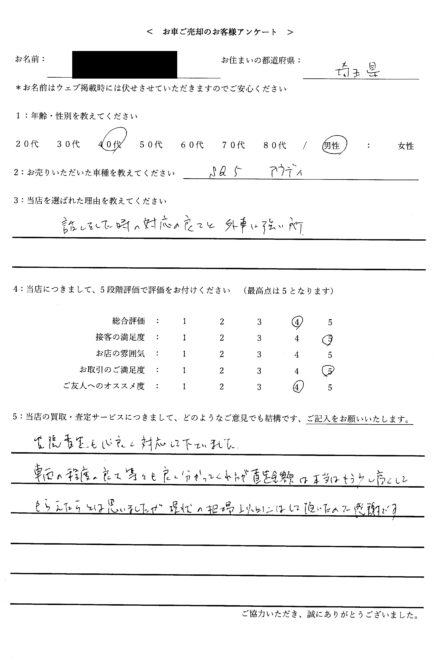 ＜　お車ご売却のお客様アンケート　＞
お名前：
お住まいの都道府県：　埼玉県
＊お名前はウェブ掲載時には伏せさせていただきますのでご安心ください
1：年齢・性別を教えてください
20代　30代　40代　50代　60代　70代　80代　/　男性　：　女性
2：お売りいただいた車種を教えてください　SQ5　アウディ
3：当店を選ばれた理由を教えてください
話しをした時の対応の良さと 外車に強い所
4：当店につきまして、5段階評価で評価をお付けください　（最高点は5となります）
総合評価　：　1　2　3　4　5
接客の満足度　：　1　2　3　4　5
お店の雰囲気　：　1　2　3　4　5
お取引のご満足度　：　1　2　3　4　5
ご友人へのオススメ度　：　1　2　3　4　5
5：当店の買取・査定サービスにつきまして、どのようなご意見でも結構です、ご記入をお願いいたします。
査定も心良く対応して下さいました
車両の程度の良さ等々も良く分かってくれたが査定金額は本当はもう少し高くして
もらえたらとは思いましたが 現状の相場以上にはして頂いたので感謝です
ご協力いただき、誠にありがとうございました。